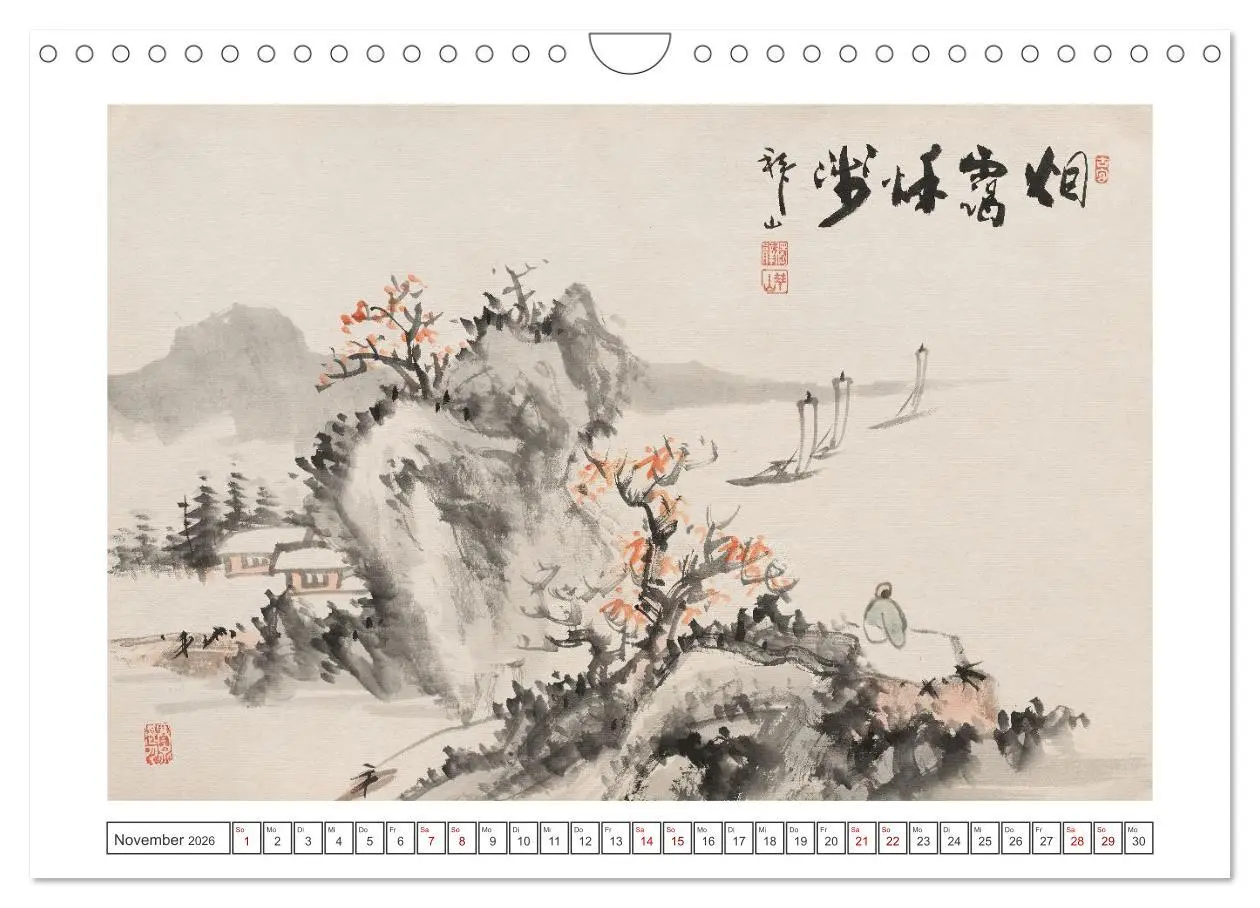 烟靄秋涉
祥山
November 2026
So Mo Di Mi Do Fr Sa So Mo Di Mi Do Fr Sa So Mo Di Mi Do Fr Sa So Mo Di Mi Do Fr Sa So Mo
1 2 3 4 5 6 7 8 9 10 11 12 13 14 15 16 17 18 19 20 21 22 23 24 25 26 27 28 29 30